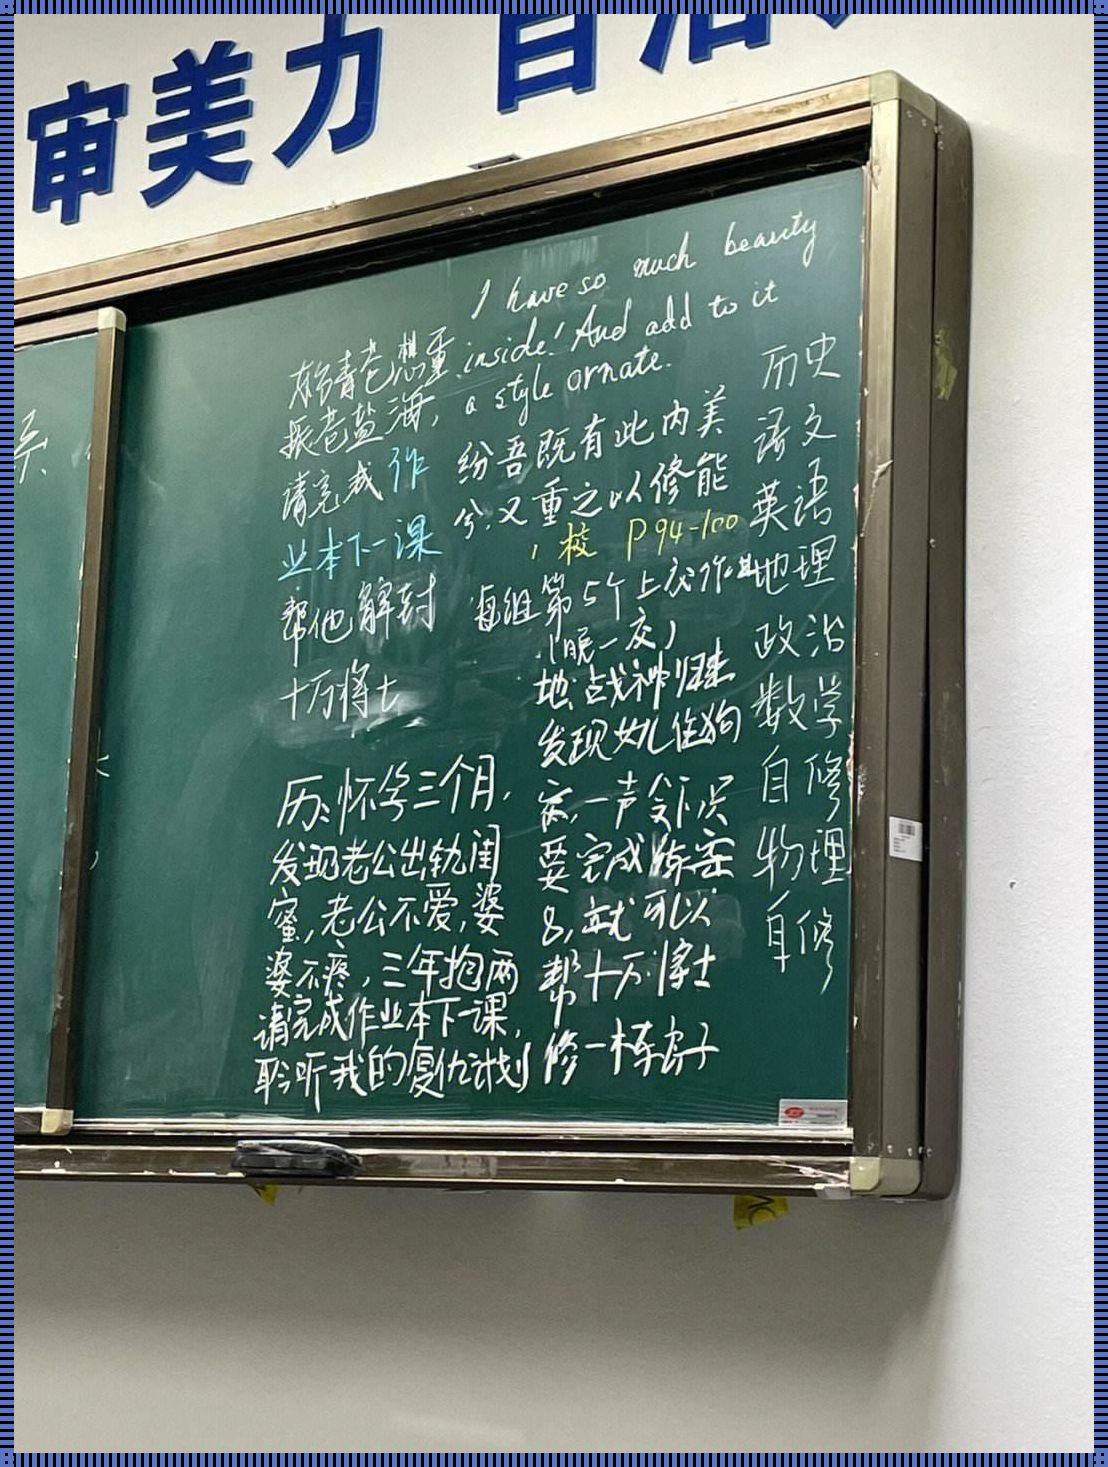 审美力 自治
I have so much beauty
inside! And add to it
a style ornate.
纷吾既有此内美
兮,又重之以修能
校 P94-100
每组第5个上交作业
地:战神归来
发现女儿住狗
窝,一声令下只
要完成练案
8,就可以
帮十万将士
修一栋房子
请完成作
业本下一课
帮他解封
十万将士
历:怀孕三个月,
发现老公出轨闺
蜜,老公不爱,婆
婆不疼,三年抱两
请完成作业本下一课,
聆听我的复仇计划
历史
语文
英语
地理
政治
数学
自修
物理
自修